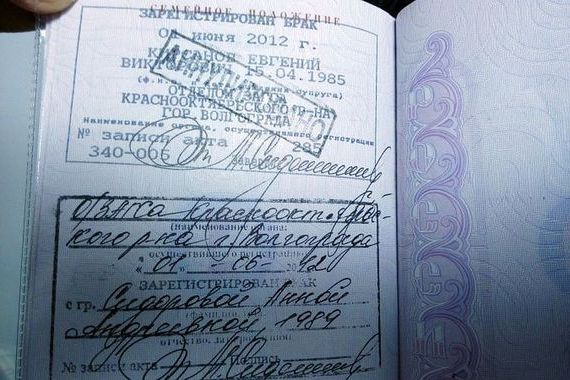 СЕМЕЙНОЕ ПОЛОЖЕНИЕ
ЗАРЕГИСТРИРОВАН БРАК
июня 2012 г.
ЕВГЕНИЙ
15.04.1985
супруга)
ОТДЕЛОМ
КРАСНООКТЯБРЬСКОГО Р-НА
ГОР. ВОЛГОГРАДА
Наименование органа, осуществившего регистрацию
№ записи акта 285
340-006
ОЗАГСа Краснооктябрьс-
кого р-на г. Волгограда
(наименование органа,
осуществившего регистрацию)
« 01 » 06
ЗАРЕГИСТРИРОВАН БРАК
с гр. Сидоровой Анной
Андреевной, 1989
отчество, дата рождения)
№ записи акта Подпись